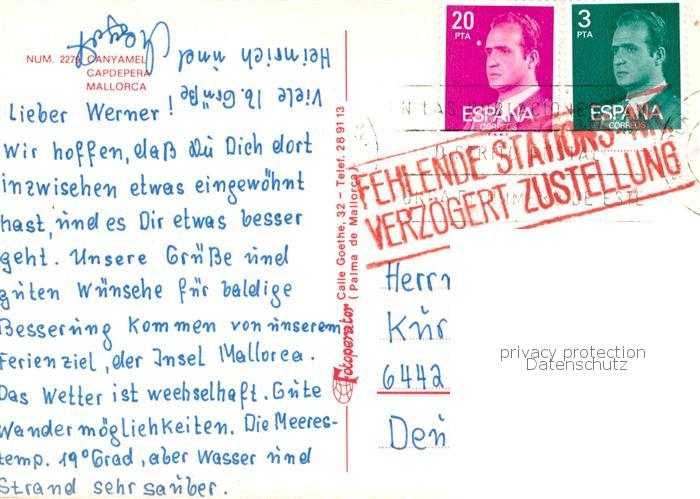 NUM. 2279 CANYAMEL
CAPDEPERA
MALLORCA
Lieber Werner!
Wir hoffen, daß Du Dich dort
inzwischen etwas eingewöhnt
hast, und es Dir etwas besser
geht. Unsere Grüße und
guten Wünsche für baldige
Besserung kommen von unserem
Ferienziel, der Insel Mallorca.
Das Wetter ist wechselhaft. Gute
Wandermöglichkeiten. Die Meeres-
temp. 19° Grad, aber Wasser und
Strand sehr sauber.
Viele lb. Grüße
Heinrich und
Fotoperator Calle Goethe, 32 - Telef. 28 91 13
(Palma de Mallorca)
20 PTA
ESPAÑA
CORREOS
3 PTA
ESPAÑA
CORREOS
FEHLENDE STATIONS-
VERZOGERT ZUSTELLUNG
Herrn
Kur
6442
Deu
privacy protection
Datenschutz